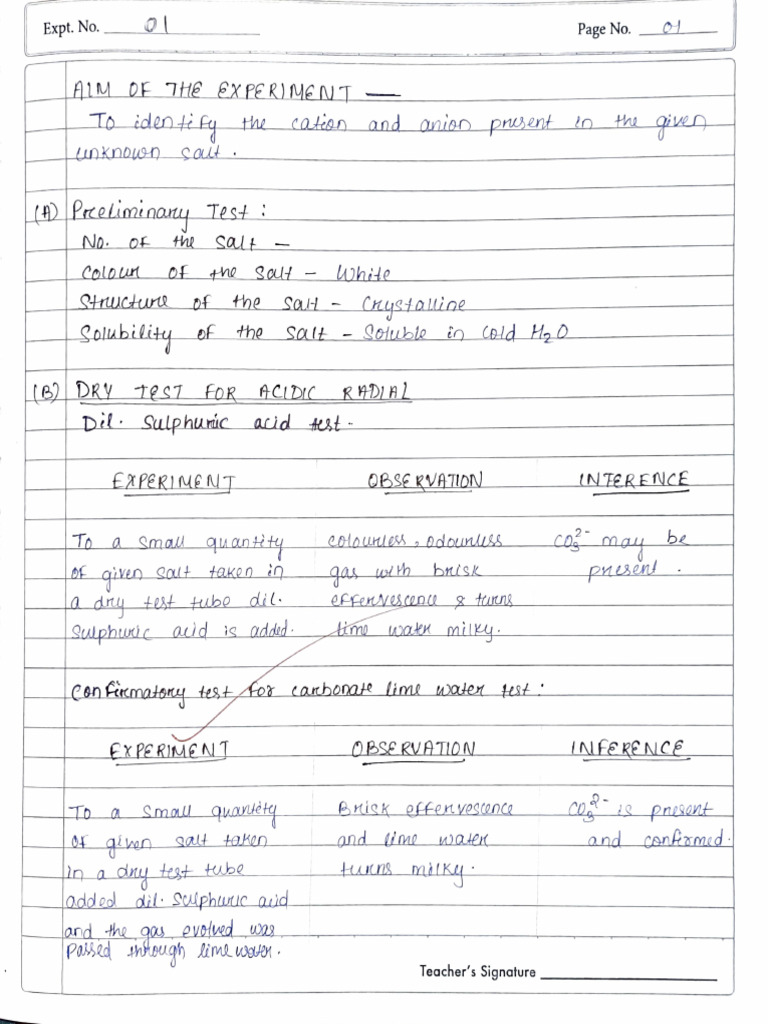 Expt. No. 01 Page No. 01
AIM OF THE EXPERIMENT —
To identify the cation and anion present in the given
unknown salt.
(A) Preliminary Test :
No. of the salt —
Colour of the salt - White
Structure of the salt - Crystalline
Solubility of the salt - Soluble in cold H₂O
(B) DRY TEST FOR ACIDIC RADIAL
Dil. Sulphuric acid test-
EXPERIMENT OBSERVATION INFERENCE
To a small quantity colourless, odourless CO₃²⁻ may be
of given salt taken in gas with brisk present.
a dry test tube dil. effervescence & turns
sulphuric acid is added. lime water milky.
Confirmatory test for carbonate lime water test:
EXPERIMENT OBSERVATION INFERENCE
To a small quantity Brisk effervescence CO₃²⁻ is present
of given salt taken and lime water and confirmed.
in a dry test tube turns milky.
added dil. sulphuric acid
and the gas evolved was
passed through lime water.
Teacher's Signature